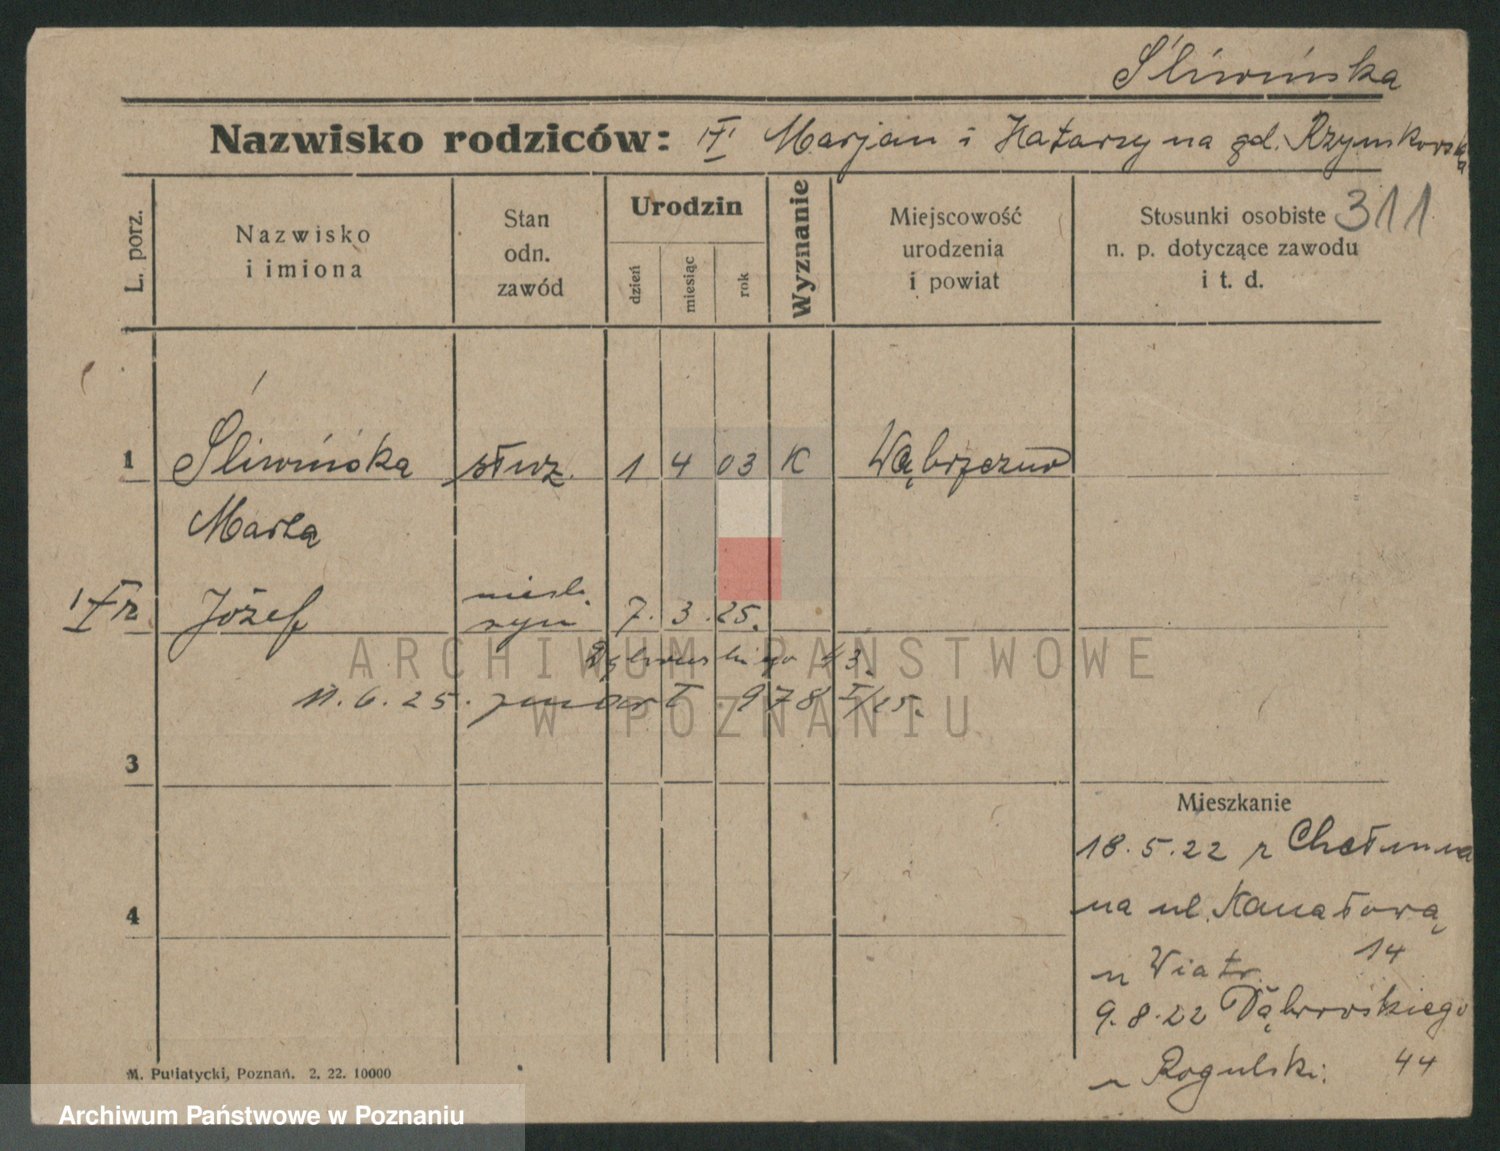 Śliwińska
Nazwisko rodziców: Marjan i Katarzyna zd. Rzymkowska
311
L. porz.
Nazwisko
i imiona
Stan
odn.
zawód
Urodzin
dzień
miesiąc
rok
Wyznanie
Miejscowość
urodzenia
i powiat
Stosunki osobiste
n. p. dotyczące zawodu
i t. d.
1 Śliwińska służ. 1 4 03 K Wąbrzeźno
Marta
Józef nieśl. syn 7. 3. 25.
Dąbrowskiego 43.
11. 6. 25. zmarł 978 I/25.
3
4
Mieszkanie
18.5.22 z Chełmna
na ul. Kanałową
14
u Wiatr.
9.8.22 Dąbrowskiego
44
u Rogulski.
M. Putiatycki, Poznań. 2. 22. 10000
ARCHIWUM PAŃSTWOWE
W POZNANIU
Archiwum Państwowe w Poznaniu